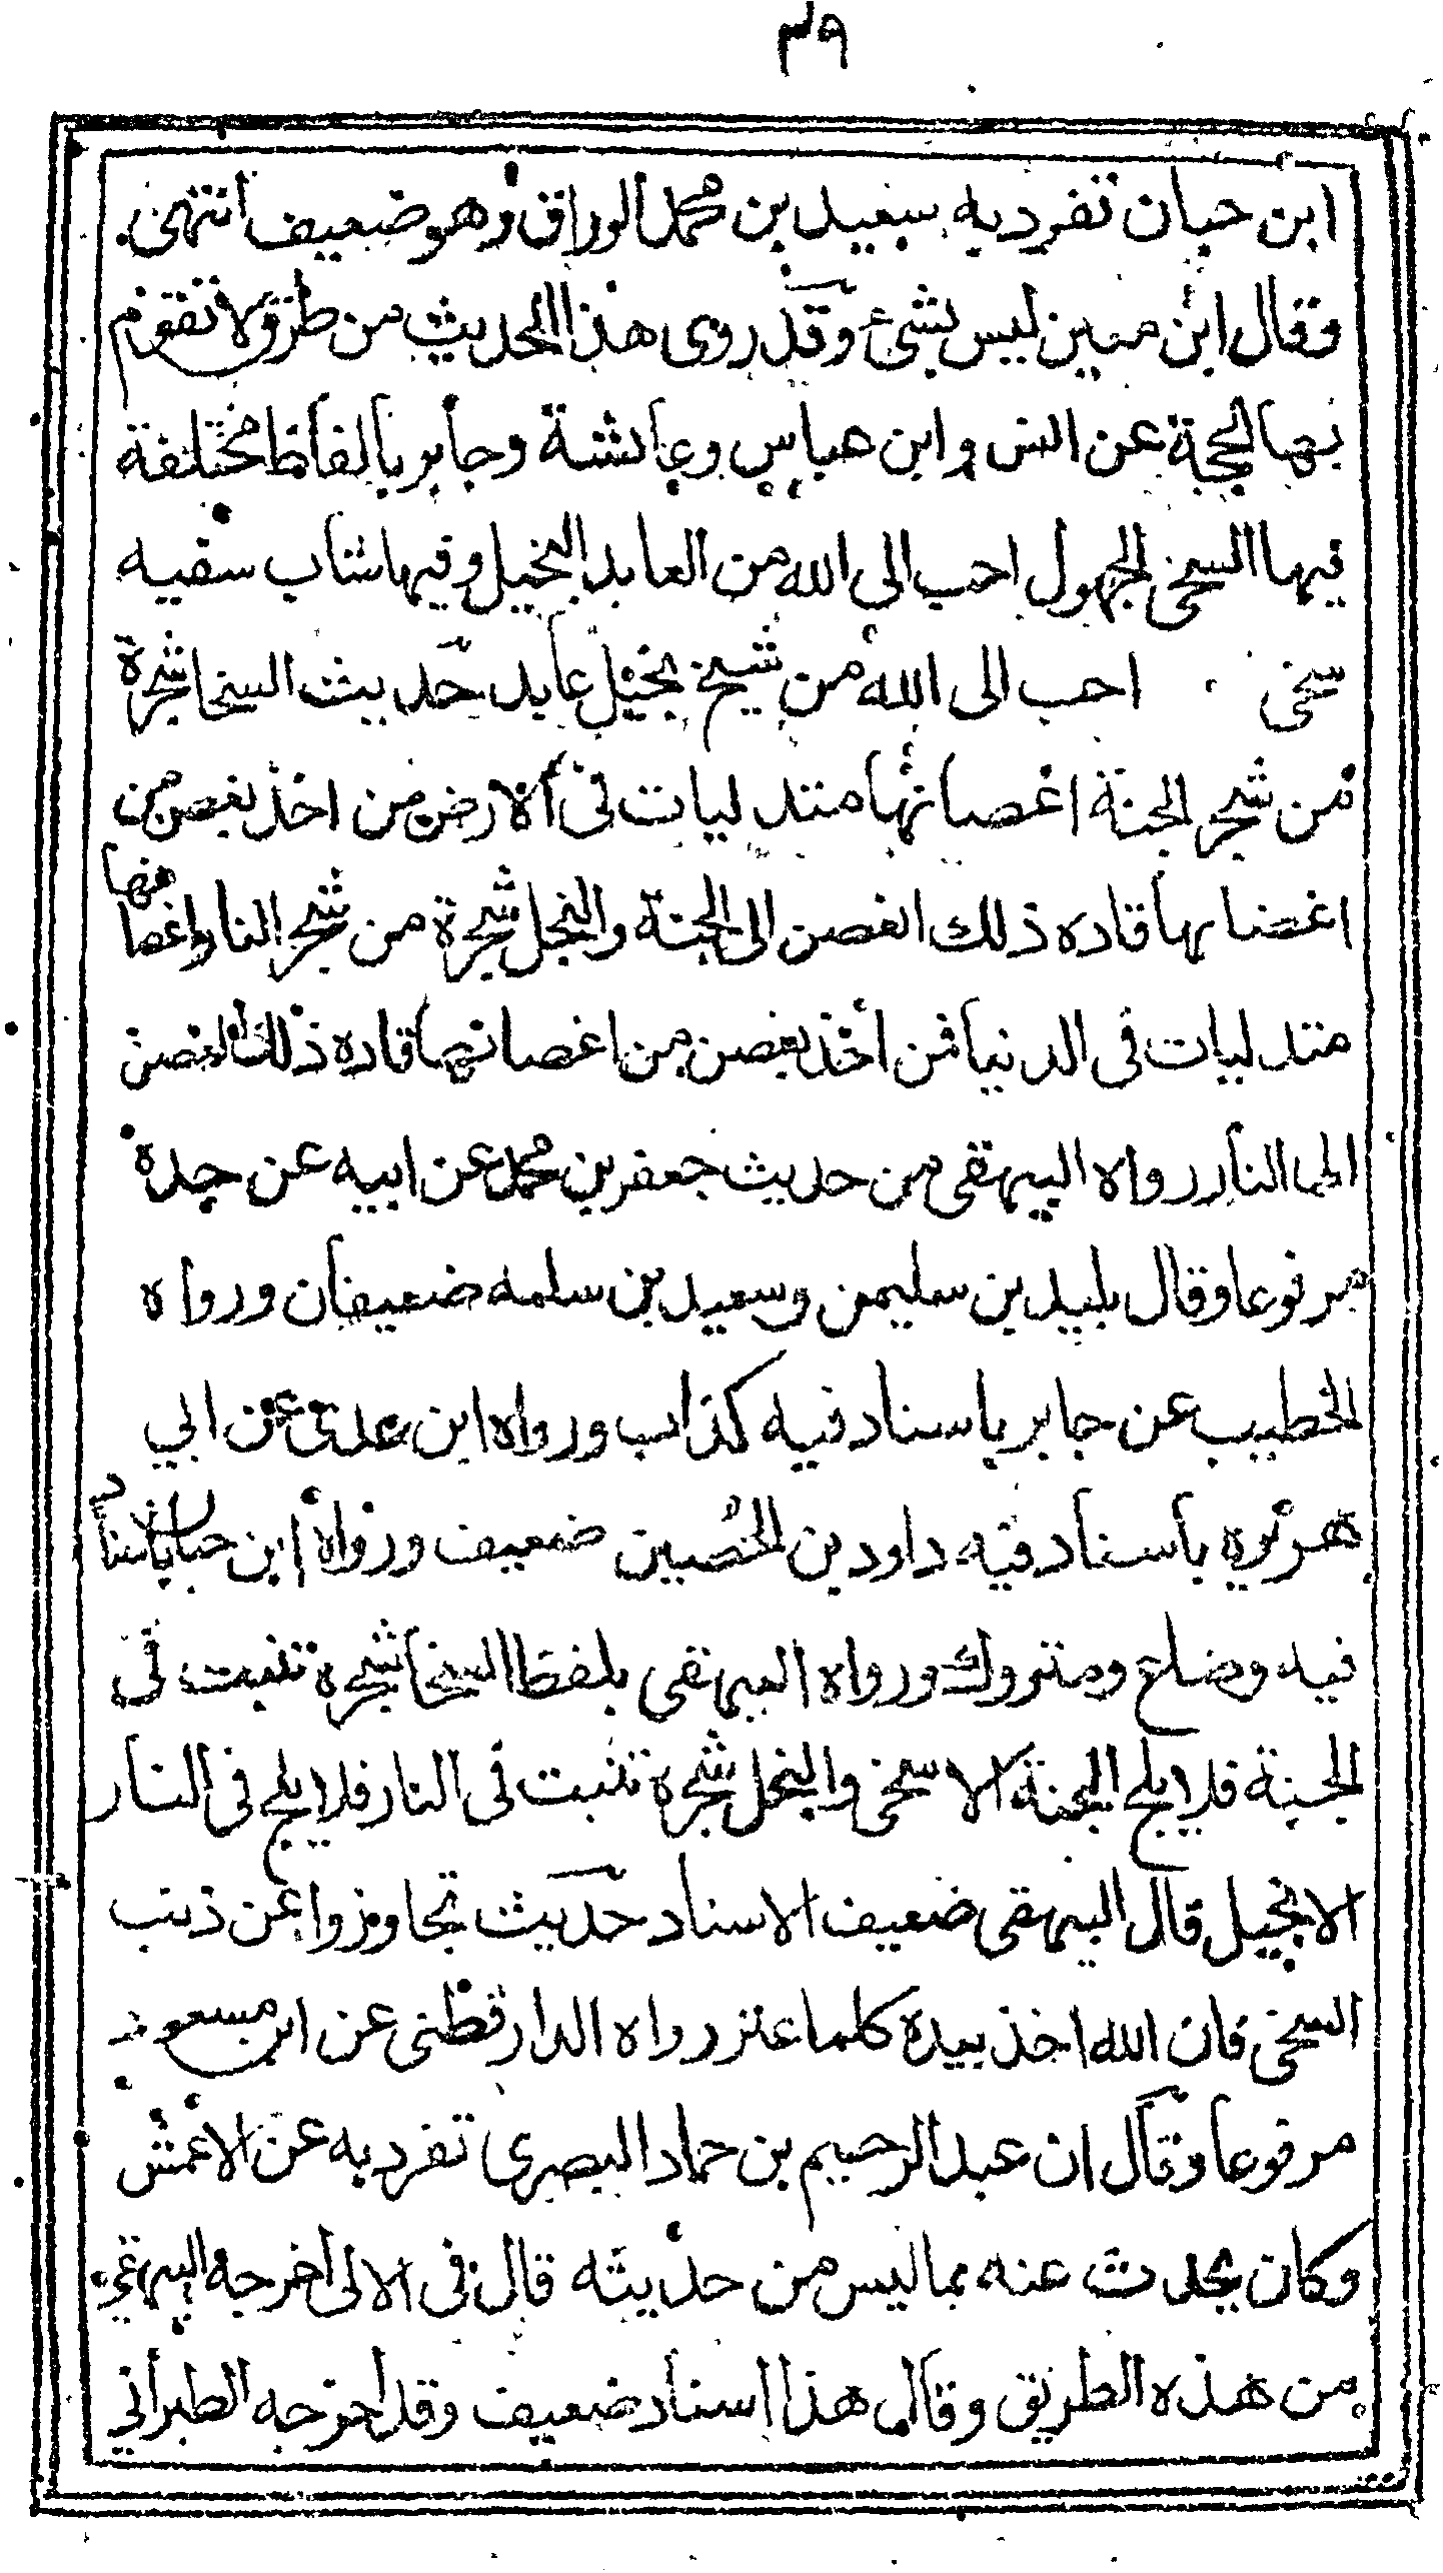 ٣٩
ابن حبان تفرد به سعيد بن محمد الوراق وهو ضعيف انتهى
وقال ابن معين ليس بشئ وقد روى هذا الحديث من طرق لا تقوم
بها الحجة عن انس و ابن عباس وعائشة وجابر بالفاظ مختلفة
فيها السخى الجهول احب الى الله من العابد البخيل وفيها شاب سفيه
سخى احب الى الله من شيخ بخيل عابد حديث السخا شجرة
من شجر الجنة اغصانها متدليات فى الارض من اخذ بغصن من
اغصانها قاده ذلك الغصن الى الجنة والبخل شجرة من شجر النار واغصانها
متدليات فى الدنيا فمن اخذ بغصن من اغصانها قاده ذلك الغصن
الى النار رواه البيهقى من حديث جعفر بن محمد عن ابيه عن جده
مرفوعا وقال بليد بن سليمن وسعيد بن سلمه ضعيفان ورواه
الخطيب عن جابر باسناد فيه كذاب ورواه ابن عدى عن ابي
هريره باسناد فيه داود بن الحصين ضعيف ورواه ابن حبان باسناد
فيه وضاع ومتروك ورواه البيهقى بلفظ السخا شجره تنبت فى
الجنة فلا يلج الجنة الا سخى والبخل شجره تنبت فى النار فلا يلج فى النار
الا بخيل قال البيهقى ضعيف الاسناد حديث تجاوزوا عن ذنب
السخى فان الله اخذ بيده كلما عثر رواه الدارقطنى عن ابن مسعود
مرفوعا وقال ان عبد الرحيم بن حماد البصرى تفرد به عن الاعمش
وكان يحدث عنه بما ليس من حديثه قال فى الالى اخرجه البيهقى
من هذه الطريق وقال هذا اسناد ضعيف وقد اخرجه الطبرانى